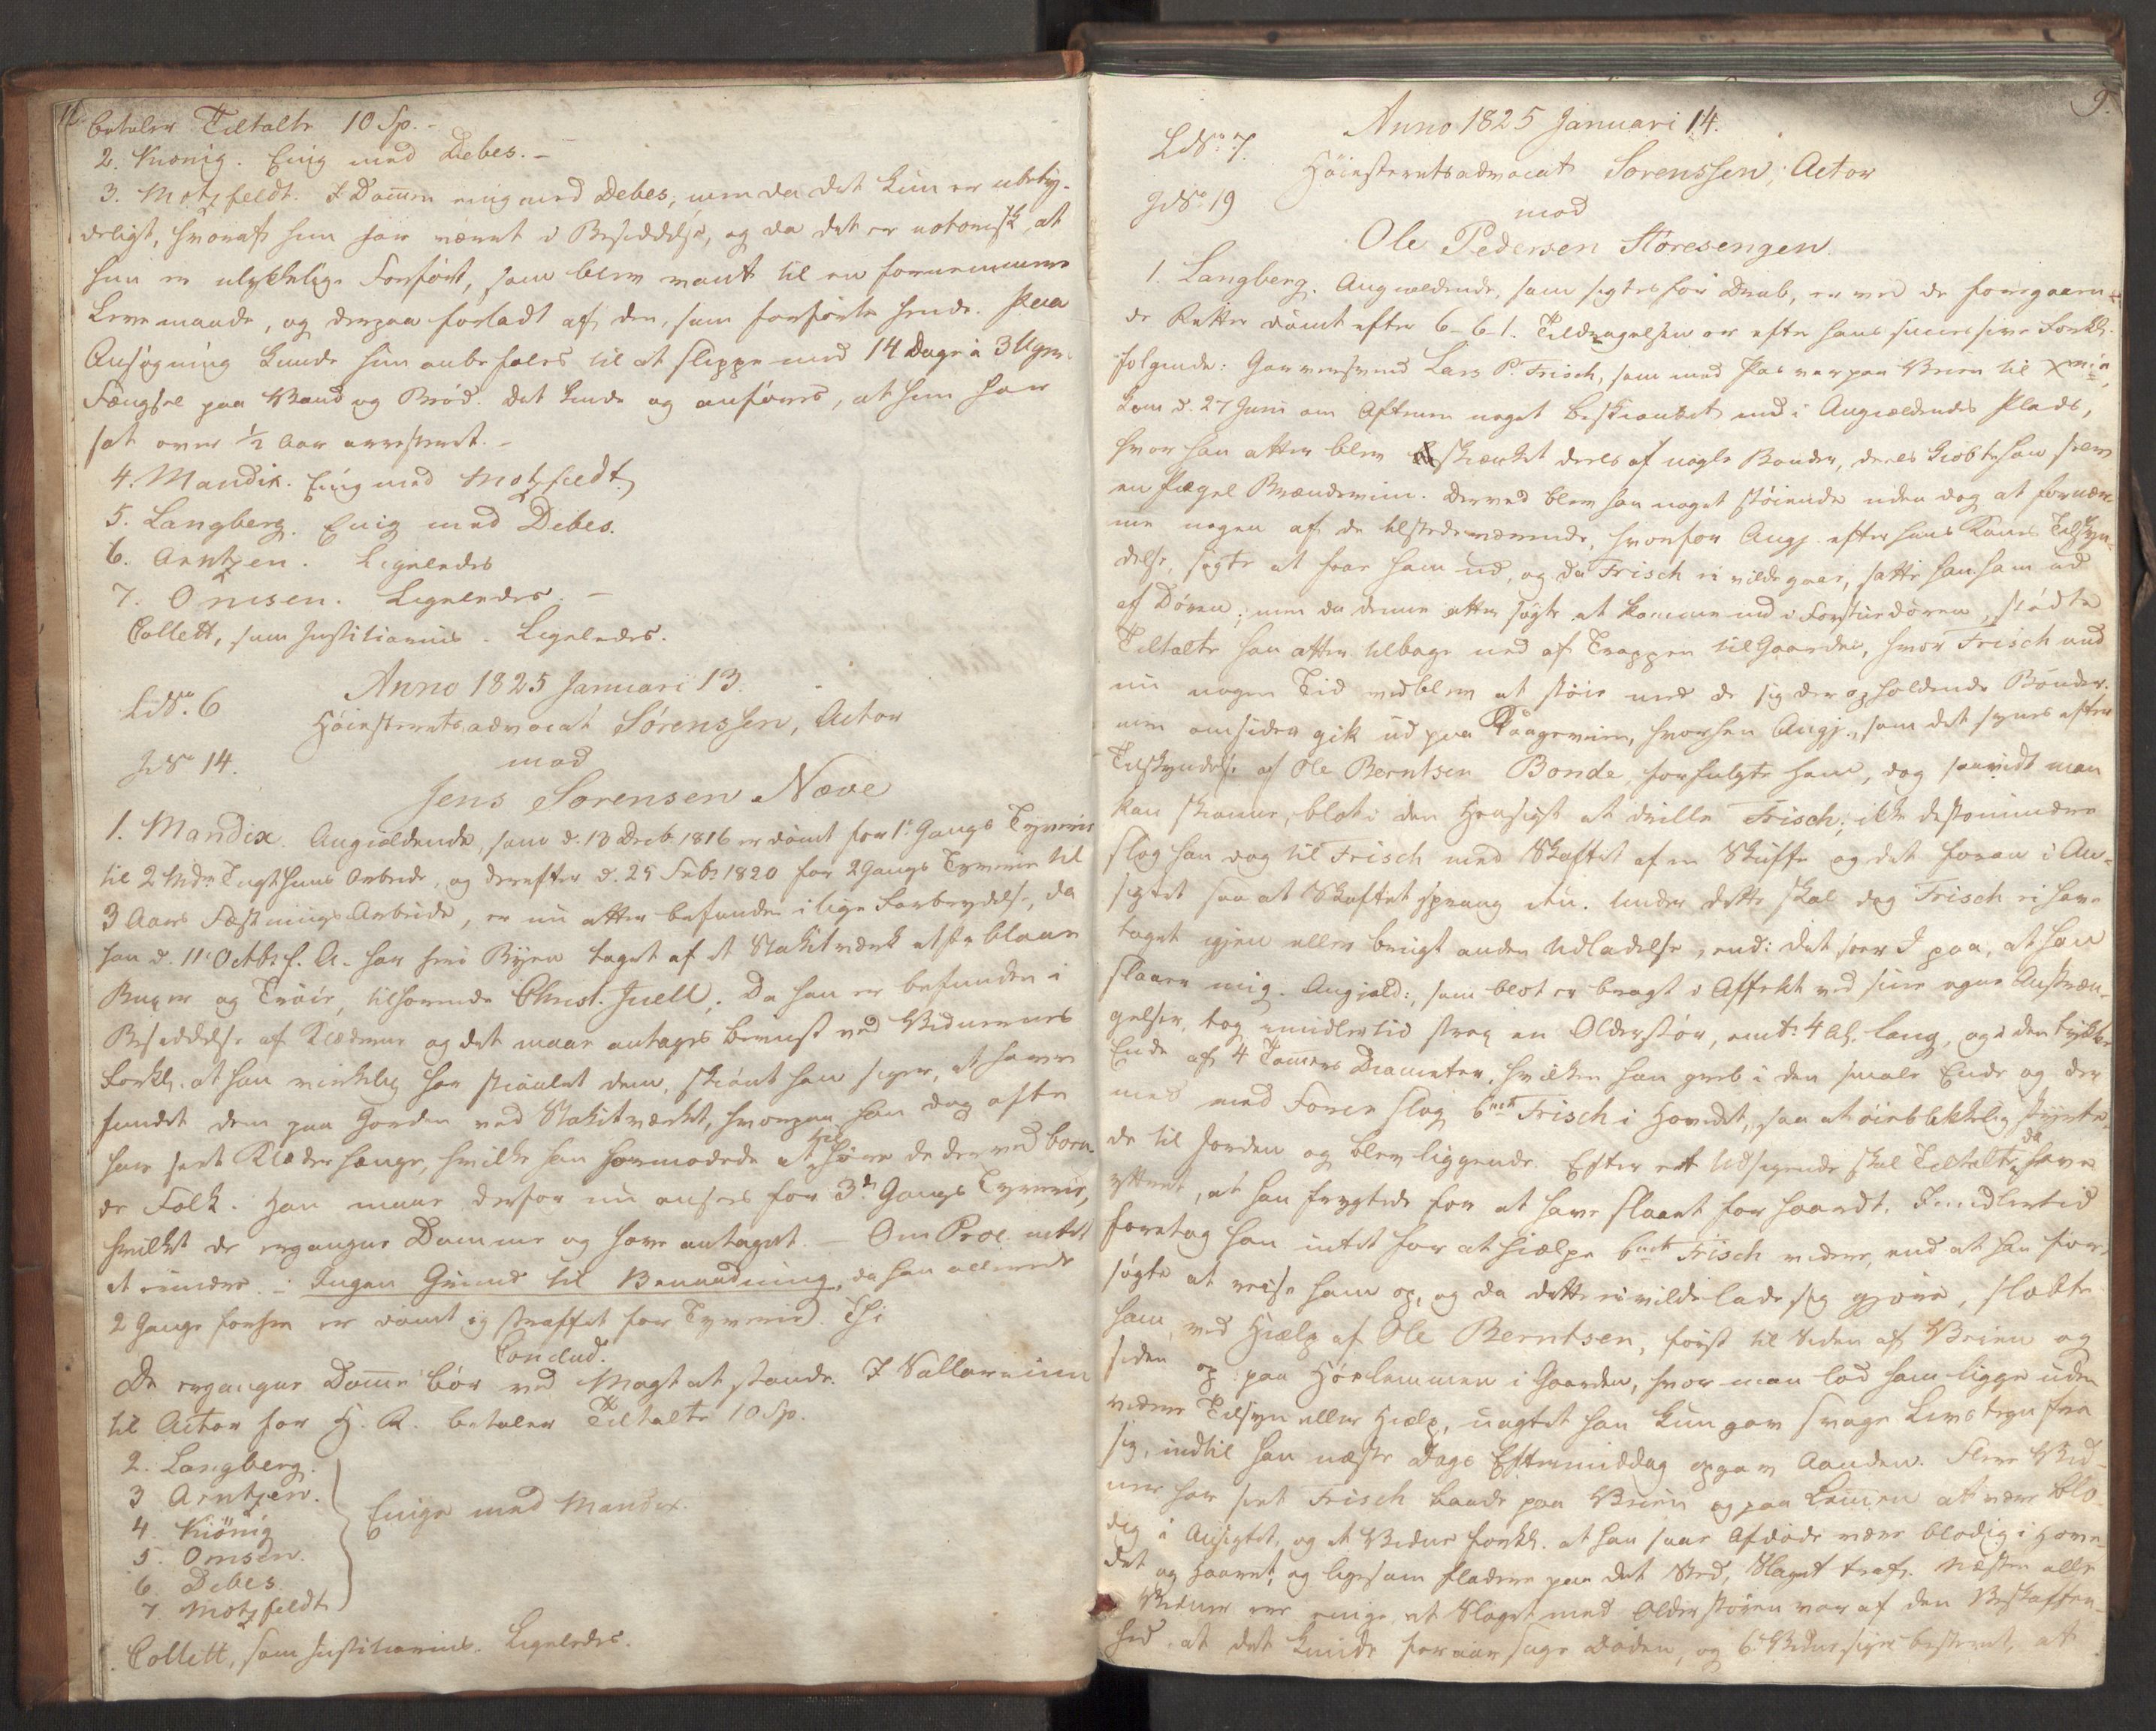 betaler Tiltalte 10 Sp. -
2. Kiønig. Enig med Debes. -
3. Motzfeldt. I Dommen enig med Debes, men da det kun er ubety-
deligt, hvoraf hun har været i Besiddelse, og da det er notorisk, at
hun er ulykkelige Forført, som blev vant til en fornemmere
Levemaade, og derpaa forladt af den, som forførte hende. Paa
Ansøgning kunde hun anbefales til at slippe med 14 Dage à 3 Ugers
Fængsel paa Vand og Brød. Det kunde og anføres, at hun har
sat over 1/2 Aar arresteret. -
4. Mandix. Enig med Motzfeldt
5. Langberg. Enig med Debes.
6. Arntzen. Ligeledes
7. Omsen. Ligeledes. -
Collett, som Justitiarius. Ligeledes.
Anno 1825 Januari 13.
L. No. 6
Høiesteretsadvocat Sørenssen, Actor
J. No 14.
mod
Jens Sørensen Næve
1. Mandix. Angieldende, som d. 13 Decb. 1816 er dømt for 1ste Gangs Tyverie
til 2 Mdrs Tugthuus Arbeide, og derefter d. 25 Febr 1820 for 2 Gangs Tyverie til
3 Aars Fæstnings Arbeide, er nu atter befunden i lige Forbrydelse, da
han d. 11 Octbr f. A. har her i Byen taget af et Stakitværk et Par blaae
Buxer og Trøie, tilhørende Christ. Juell. Da han er befunden i
Besiddelse af Klæderne og det maae antages beviist ved Vidnernes
Forkl. at han virkelig har stiaalet dem, skiønt han siger, at have
fundet dem paa Jorden ved Stakitværket, hvorpaa han dog ofte
har seet Klæder hænge, hvilke han formodede at tilhøre de derved boen-
de Folk. Han maae derfor nu ansees for 3die Gangs Tyverie,
hvilket de ergangne Domme og have antaget. - Om Proc. intet
at erindre. - Ingen Grund til Benaadning, da han allerede
2 Gange forhen er dømt og straffet for Tyverie. Thi
Conclud.
De ergangne Domme bør ved Magt at stande. I Sallarium
til Actor for H. R. betaler Tiltalte 10 Sp.
2. Langberg.
3 Arntzen.
4. Kiönig
5. Omsen.
6. Debes.
7. Motzfeldt
Enige med Mandix.
Collett, som Justitiarius. Ligeledes.
9.
Anno 1825 Januari 14.
L. No. 7.
Høiesteretsadvocat Sørenssen, Actor
J. No. 19
mod
Ole Pedersen Støresengen.
1. Langberg. Angieldende, som sigtes for Drab, er ved de foregaaen-
de Retter dømt efter 6-6-1. Tildragelsen er efter hans successive Forkl.
følgende: Garversvend Lars P. Frisch, som med Pas var paa Veien til Xnia,
kom d. 27 Juni om Aftenen noget beskiænket ind i Angieldendes Plads,
hvor han atter blev skiænket deels af nogle Bønder, deels kiøbte han selv
en Pægel Brændeviin. Derved blev han noget støiende uden dog at fornær-
me nogen af de tilstedeværende, hvorfor Angj. efter hans Kones Tilskyn-
delse, søgte at faae ham ud, og da Frisch ei vilde gaae, satte han ham ud
af Døren; men da denne atter søgte at komme ind i Forstuedøren, stødte
Tiltalte ham atter tilbage ned af Trappen til Gaarden, hvor Frisch end
nu nogen Tid vedblev at støie med de sig der opholdende Bønder.
men omsider gik ud paa Kongeveien, hvorhen Angj., som det synes efter
Tilskyndelse af Ole Berntsen Bonde, forfulgte ham, dog saavidt man
kan skiønne, blot i den Hensigt at drille Frisch; ikke destomindre
slog han dog til Frisch med Skaftet af en Skuffe og det foran i An-
sigtet saa at Skaftet sprang itu. Under dette skal dog Frisch ei have
taget igjen eller brugt anden Udladelse, end: det seer I paa, at han
slaaer mig. Angield:, som blot er bragt i Affekt ved sine egne Anstræn-
gelser, tog imidlertid strax en Olderstør, omtr 4 Al. lang, og i den tykke
Ende af 4 Tommers Diameter, hvilken han greb i den smale Ende og der-
med med Force slog bemte Frisch i Hovedet, saa at øieblikkelig styrte-
de til Jorden og blev liggende. Efter et Udsigende skal Tiltalte da have
yttret, at han frygtede for at have slaaet for haardt. Imidlertid
foretog han intet for at hiælpe bemte Frisch videre, end at han for-
søgte at reise ham op, og da dette ei vilde lade sig giøre, slæbte
ham, ved Hiælp af Ole Berntsen, først til Siden af Veien og
siden op paa Høelemmen i Gaarden, hvor man lod ham ligge uden
videre Tilsyn eller Hiælp, uagtet han kun gav svage Livstegn fra
sig, indtil han næste Dags Eftermiddag opgav Aanden. Flere Vid-
ner har seet Frisch baade paa Veien og paa Lemmen at være blo-
dig i Ansigtet, og et Vidne forkl. at han saae Afdøde være blodig i Hove-
det og Haaret, og ligesom fladere paa det Sted, Slaget traf. Næsten alle
Vidner ere enige, at Slaget med Olderstøren var af den Beskaffen-
hed, at det kunde foraarsage Døden, og 6te Vidne siger bestemt, at